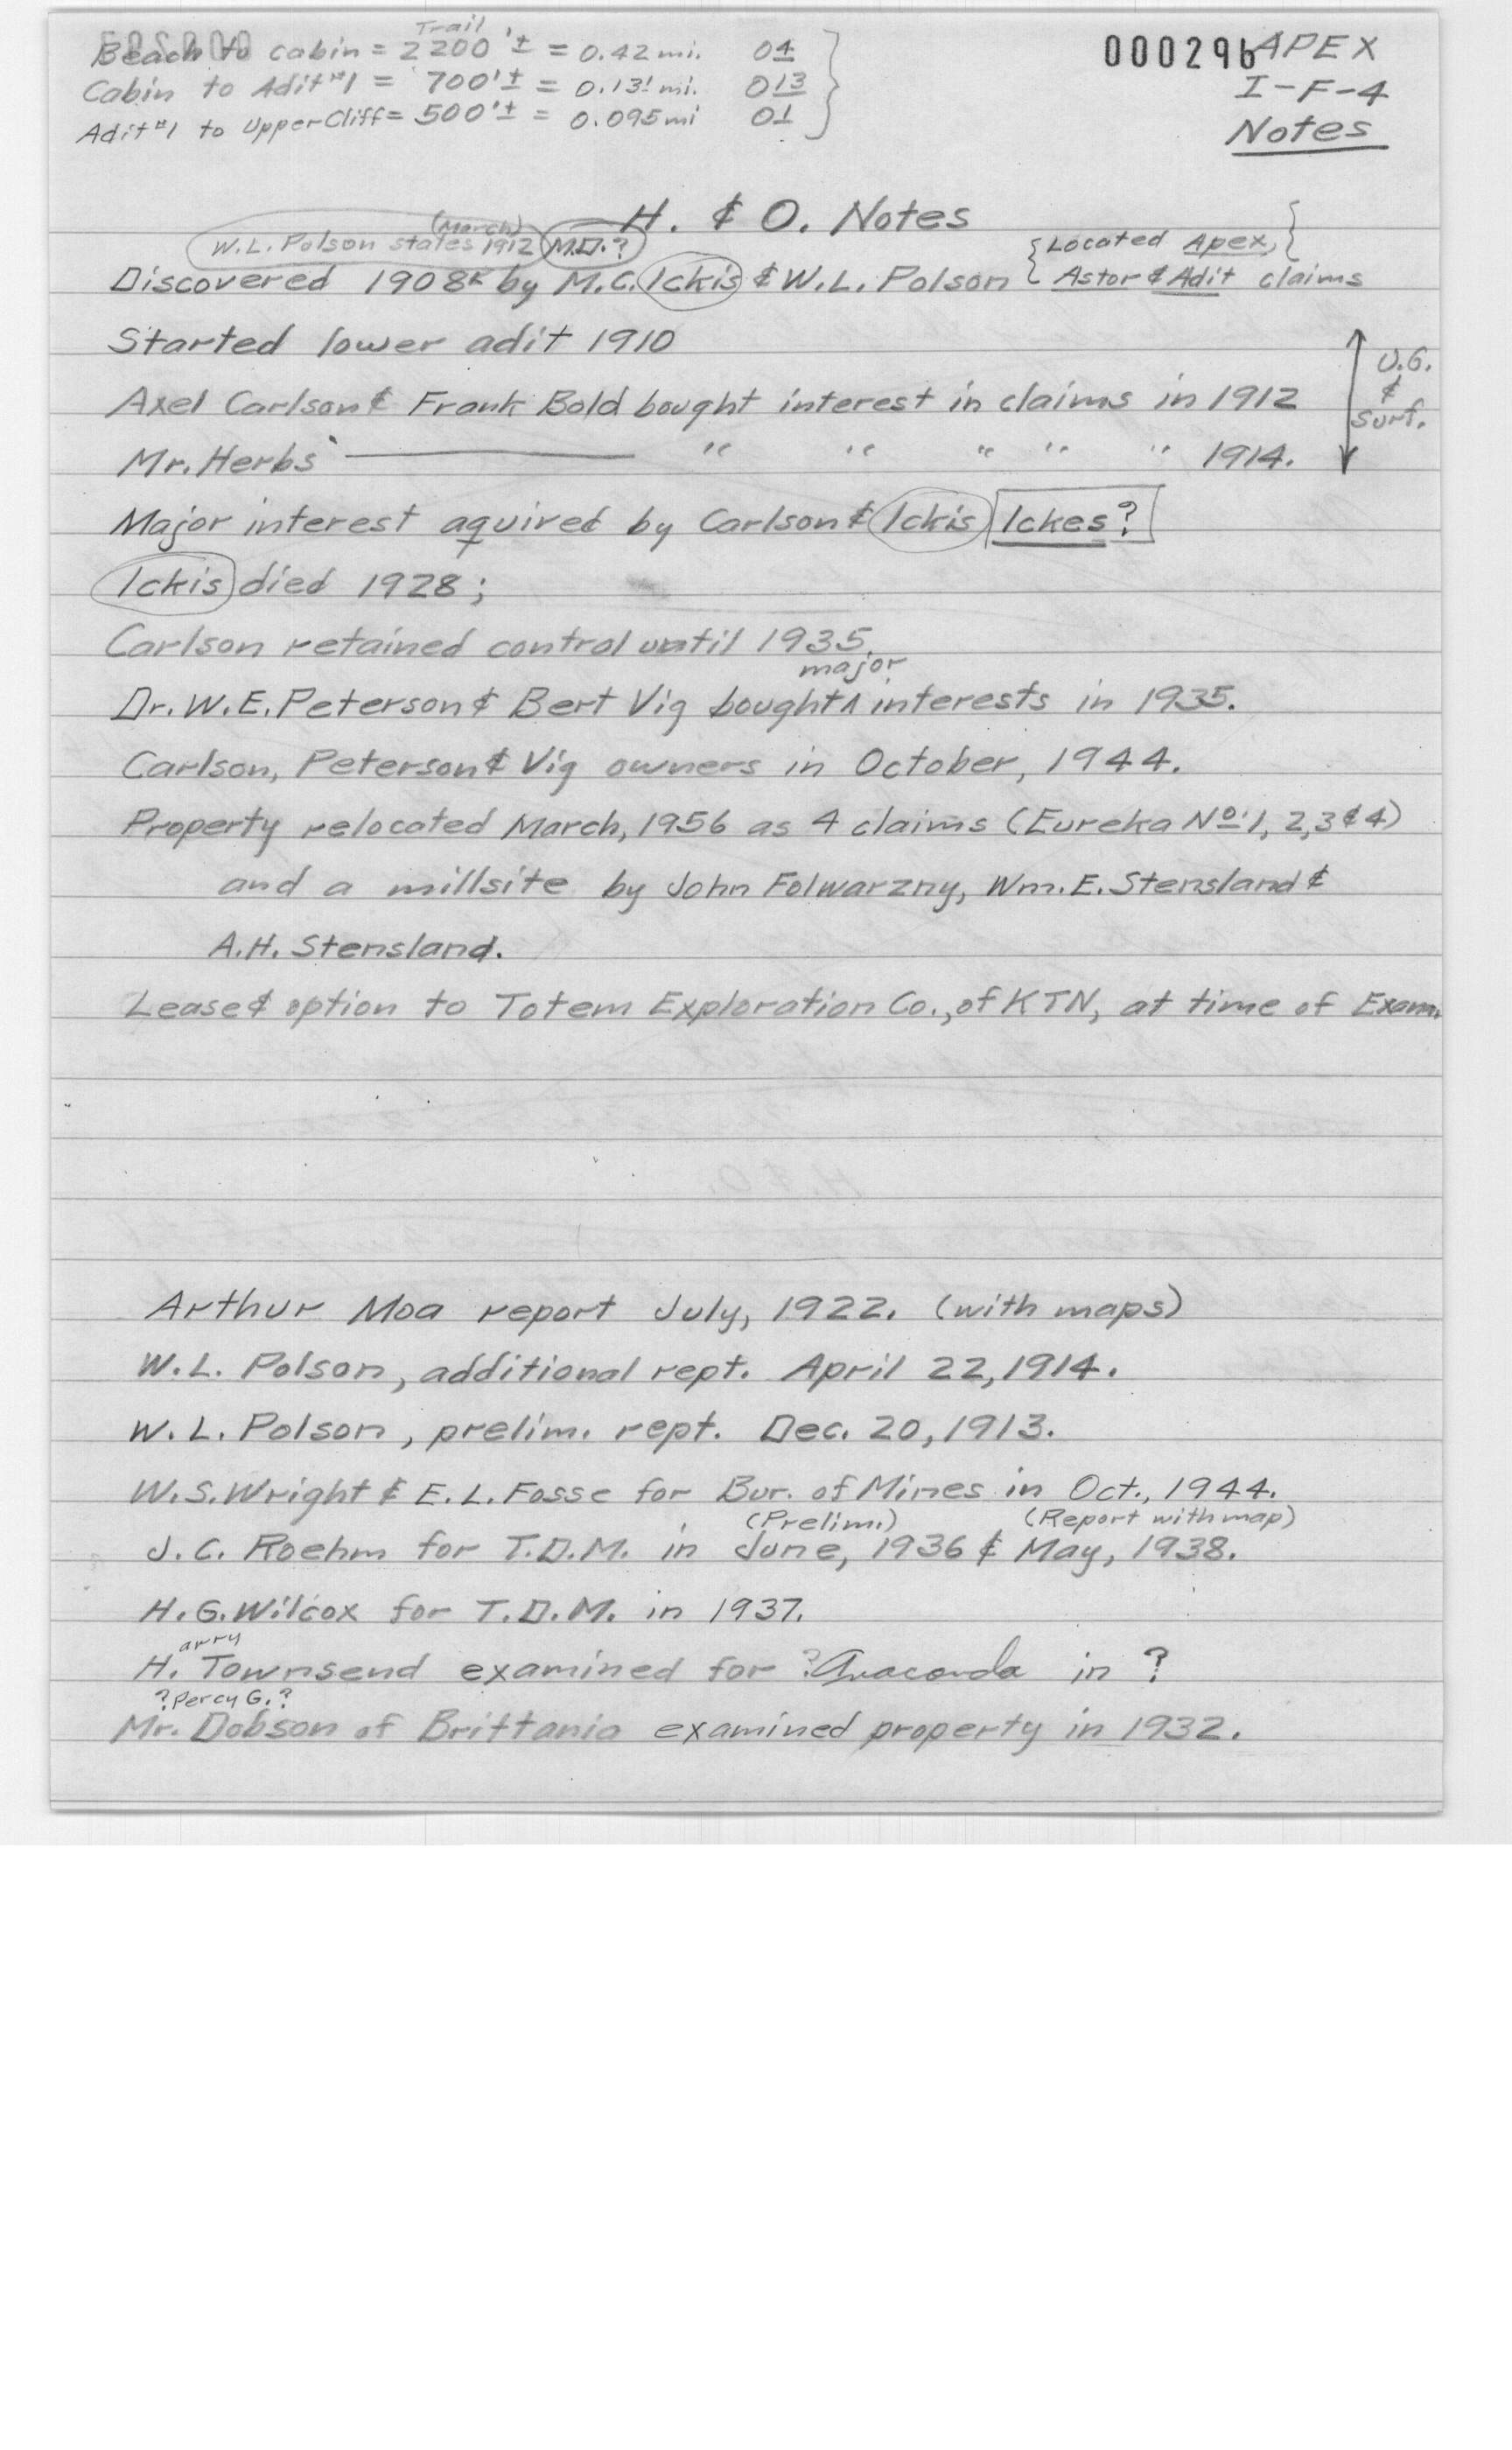 Trail
Beach to cabin = 2200'± = 0.42 mi. 04
Cabin to Adit #1 = 700'± = 0.131 mi. 013
Adit #1 to Upper Cliff = 500'± = 0.095 mi 01
000296 APEX
I-F-4
Notes
H. & O. Notes
(March)
W.L. Polson states 1912 M.D.?
Located Apex,
Discovered 1908 by M.C. Ickis & W.L. Polson Astor & Adit claims
Started lower adit 1910
U.G. & Surf.
Axel Carlson & Frank Bold bought interest in claims in 1912
Mr. Herbs — " " " " " 1914.
Major interest aquired by Carlson & Ickis Ickes?
Ickis died 1928;
Carlson retained control until 1935.
major
Dr. W.E. Peterson & Bert Vig bought ^ interests in 1935.
Carlson, Peterson & Vig owners in October, 1944.
Property relocated March, 1956 as 4 claims (Eureka No. 1, 2, 3 & 4)
and a millsite by John Folwarzny, Wm. E. Stensland &
A.H. Stensland.
Lease & option to Totem Exploration Co., of KTN, at time of Exam.
Arthur Moa report July, 1922. (with maps)
W.L. Polson, additional rept. April 22, 1914.
W.L. Polson, prelim. rept. Dec. 20, 1913.
W.S. Wright & E.L. Fosse for Bur. of Mines in Oct., 1944.
(Prelim.) (Report with map)
J.C. Roehm for T.D.M. in June, 1936 & May, 1938.
H.G. Wilcox for T.D.M. in 1937.
arry
H. Townsend examined for ? Anaconda in ?
? Percy G. ?
Mr. Dobson of Brittania examined property in 1932.